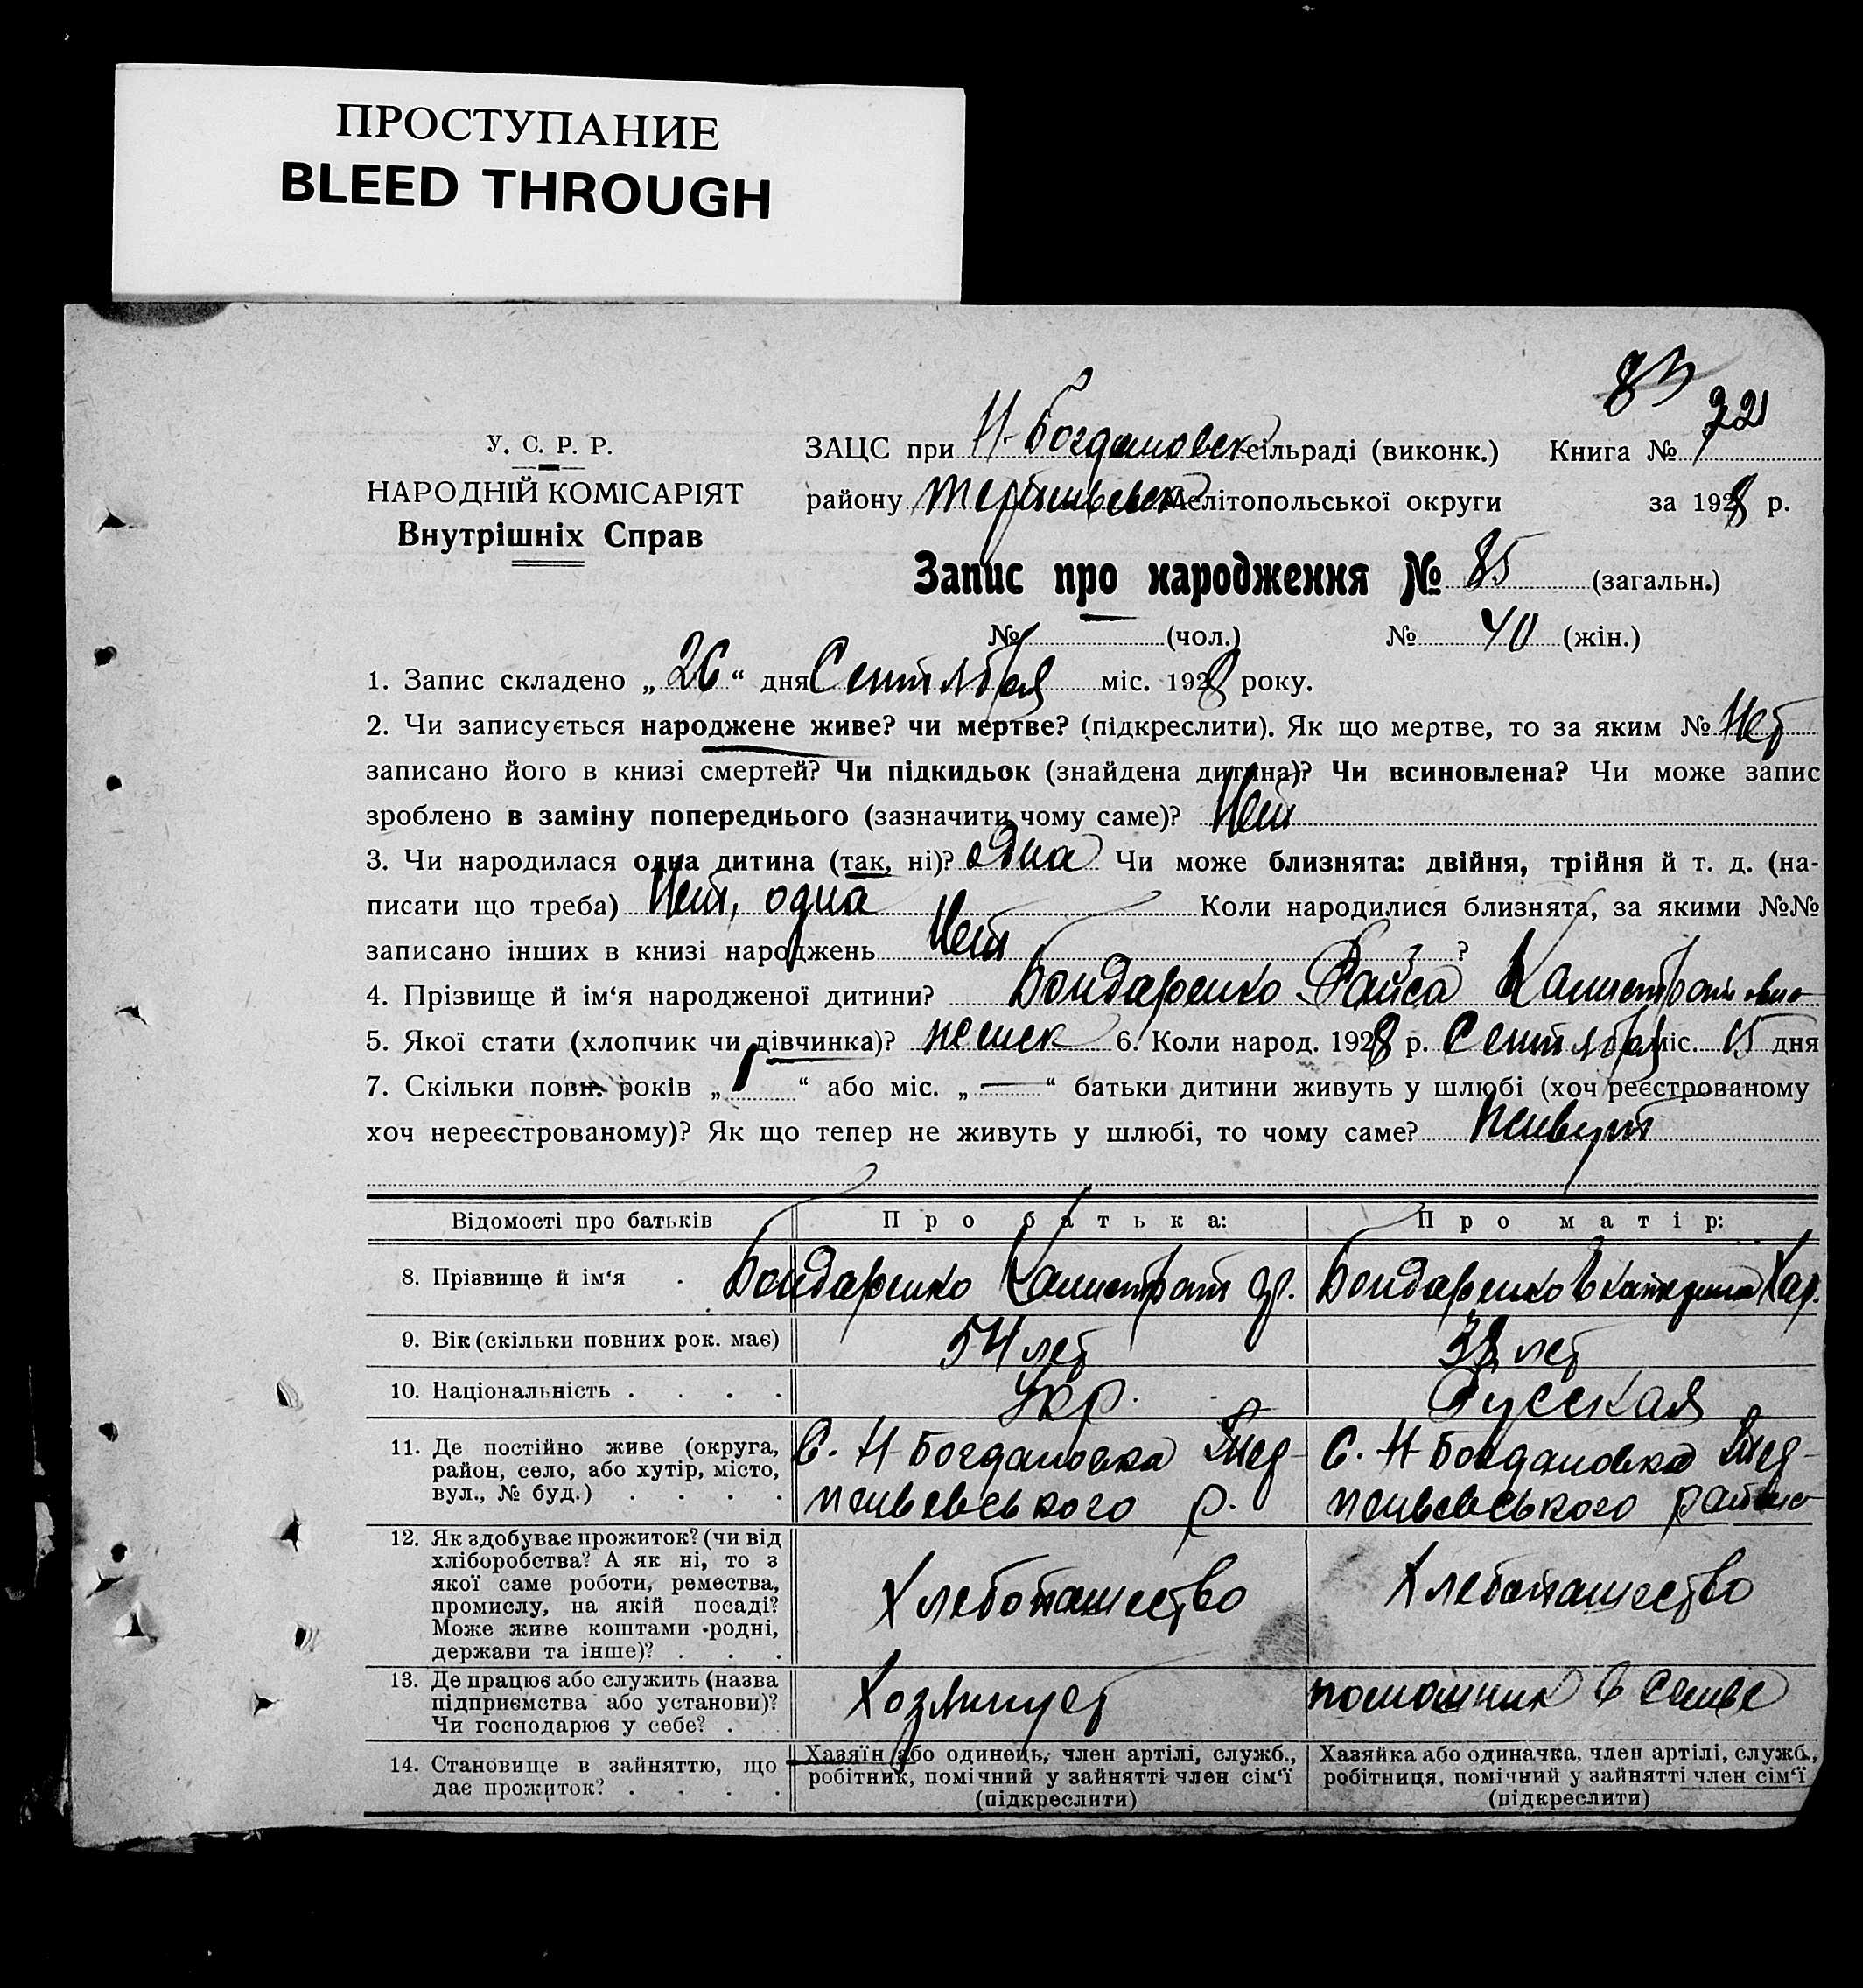 ПРОСТУПАНИЕ
BLEED THROUGH
83
У. С. Р. Р.
НАРОДНІЙ КОМІСАРІЯТ
Внутрішніх Справ
ЗАЦС при Н-Богдановск сільраді (виконк.) Книга №
району Мелітопольської округи за 1928 р.
Запис про народження № 85 (загальн.)
№ (чол.) № 40 (жін.)
1. Запис складено „26“ дня Сентября міс. 1928 року.
2. Чи записується народжене живе? чи мертве? (підкреслити). Як що мертве, то за яким № Нет
записано його в книзі смертей? Чи підкидьок (знайдена дитина)? Чи всиновлена? Чи може запис
зроблено в заміну попереднього (зазначити чому саме)? Нет
3. Чи народилася одна дитина (так, ні)? Одна Чи може близнята: двійня, трійня й т. д. (на-
писати що треба) Нет, одна Коли народилися близнята, за якими №№
записано інших в книзі народжень Нет ?
4. Прізвище й ім‘я народженої дитини? Бондаренко Раиса Калистратовна
5. Якої стати (хлопчик чи дівчинка)? женск 6. Коли народ. 1928 р. Сентября міс. 15 дня
7. Скільки повн. років „ “ або міс. „—“ батьки дитини живуть у шлюбі (хоч реєстрованому
хоч нереєстрованому)? Як що тепер не живуть у шлюбі, то чому саме? живут
Відомості про батьків Про батька: Про матір:
8. Прізвище й ім‘я . Бондаренко Калистрат Бондаренко Екатерина Хар.
9. Вік (скільки повних рок. має) 54 лет 38 лет
10. Національність . . . . Укр. Русская
11. Де постійно живе (округа,
район, село, або хутір, місто,
вул., № буд.) . . . .
С. Н-Богдановка
р.
С. Н-Богдановка
района
12. Як здобуває прожиток? (чи від
хліборобства? А як ні, то з
якої саме роботи, ремества,
промислу, на якій посаді?
Може живе коштами родні,
держави та інше)? . . .
Хлебопашество Хлебопашество
13. Де працює або служить (назва
підприємства або установи)?
Чи господарює у себе? .
Хозяинует помошник в семье
14. Становище в зайняттю, що
дає прожиток? . . . .
Хазяїн або одинець, член артілі, служб.,
робітник, помічний у зайнятті член сім‘ї
(підкреслити)
Хазяйка або одиначка, член артілі, служб.,
робітниця, помічний у зайнятті член сім‘ї
(підкреслити)